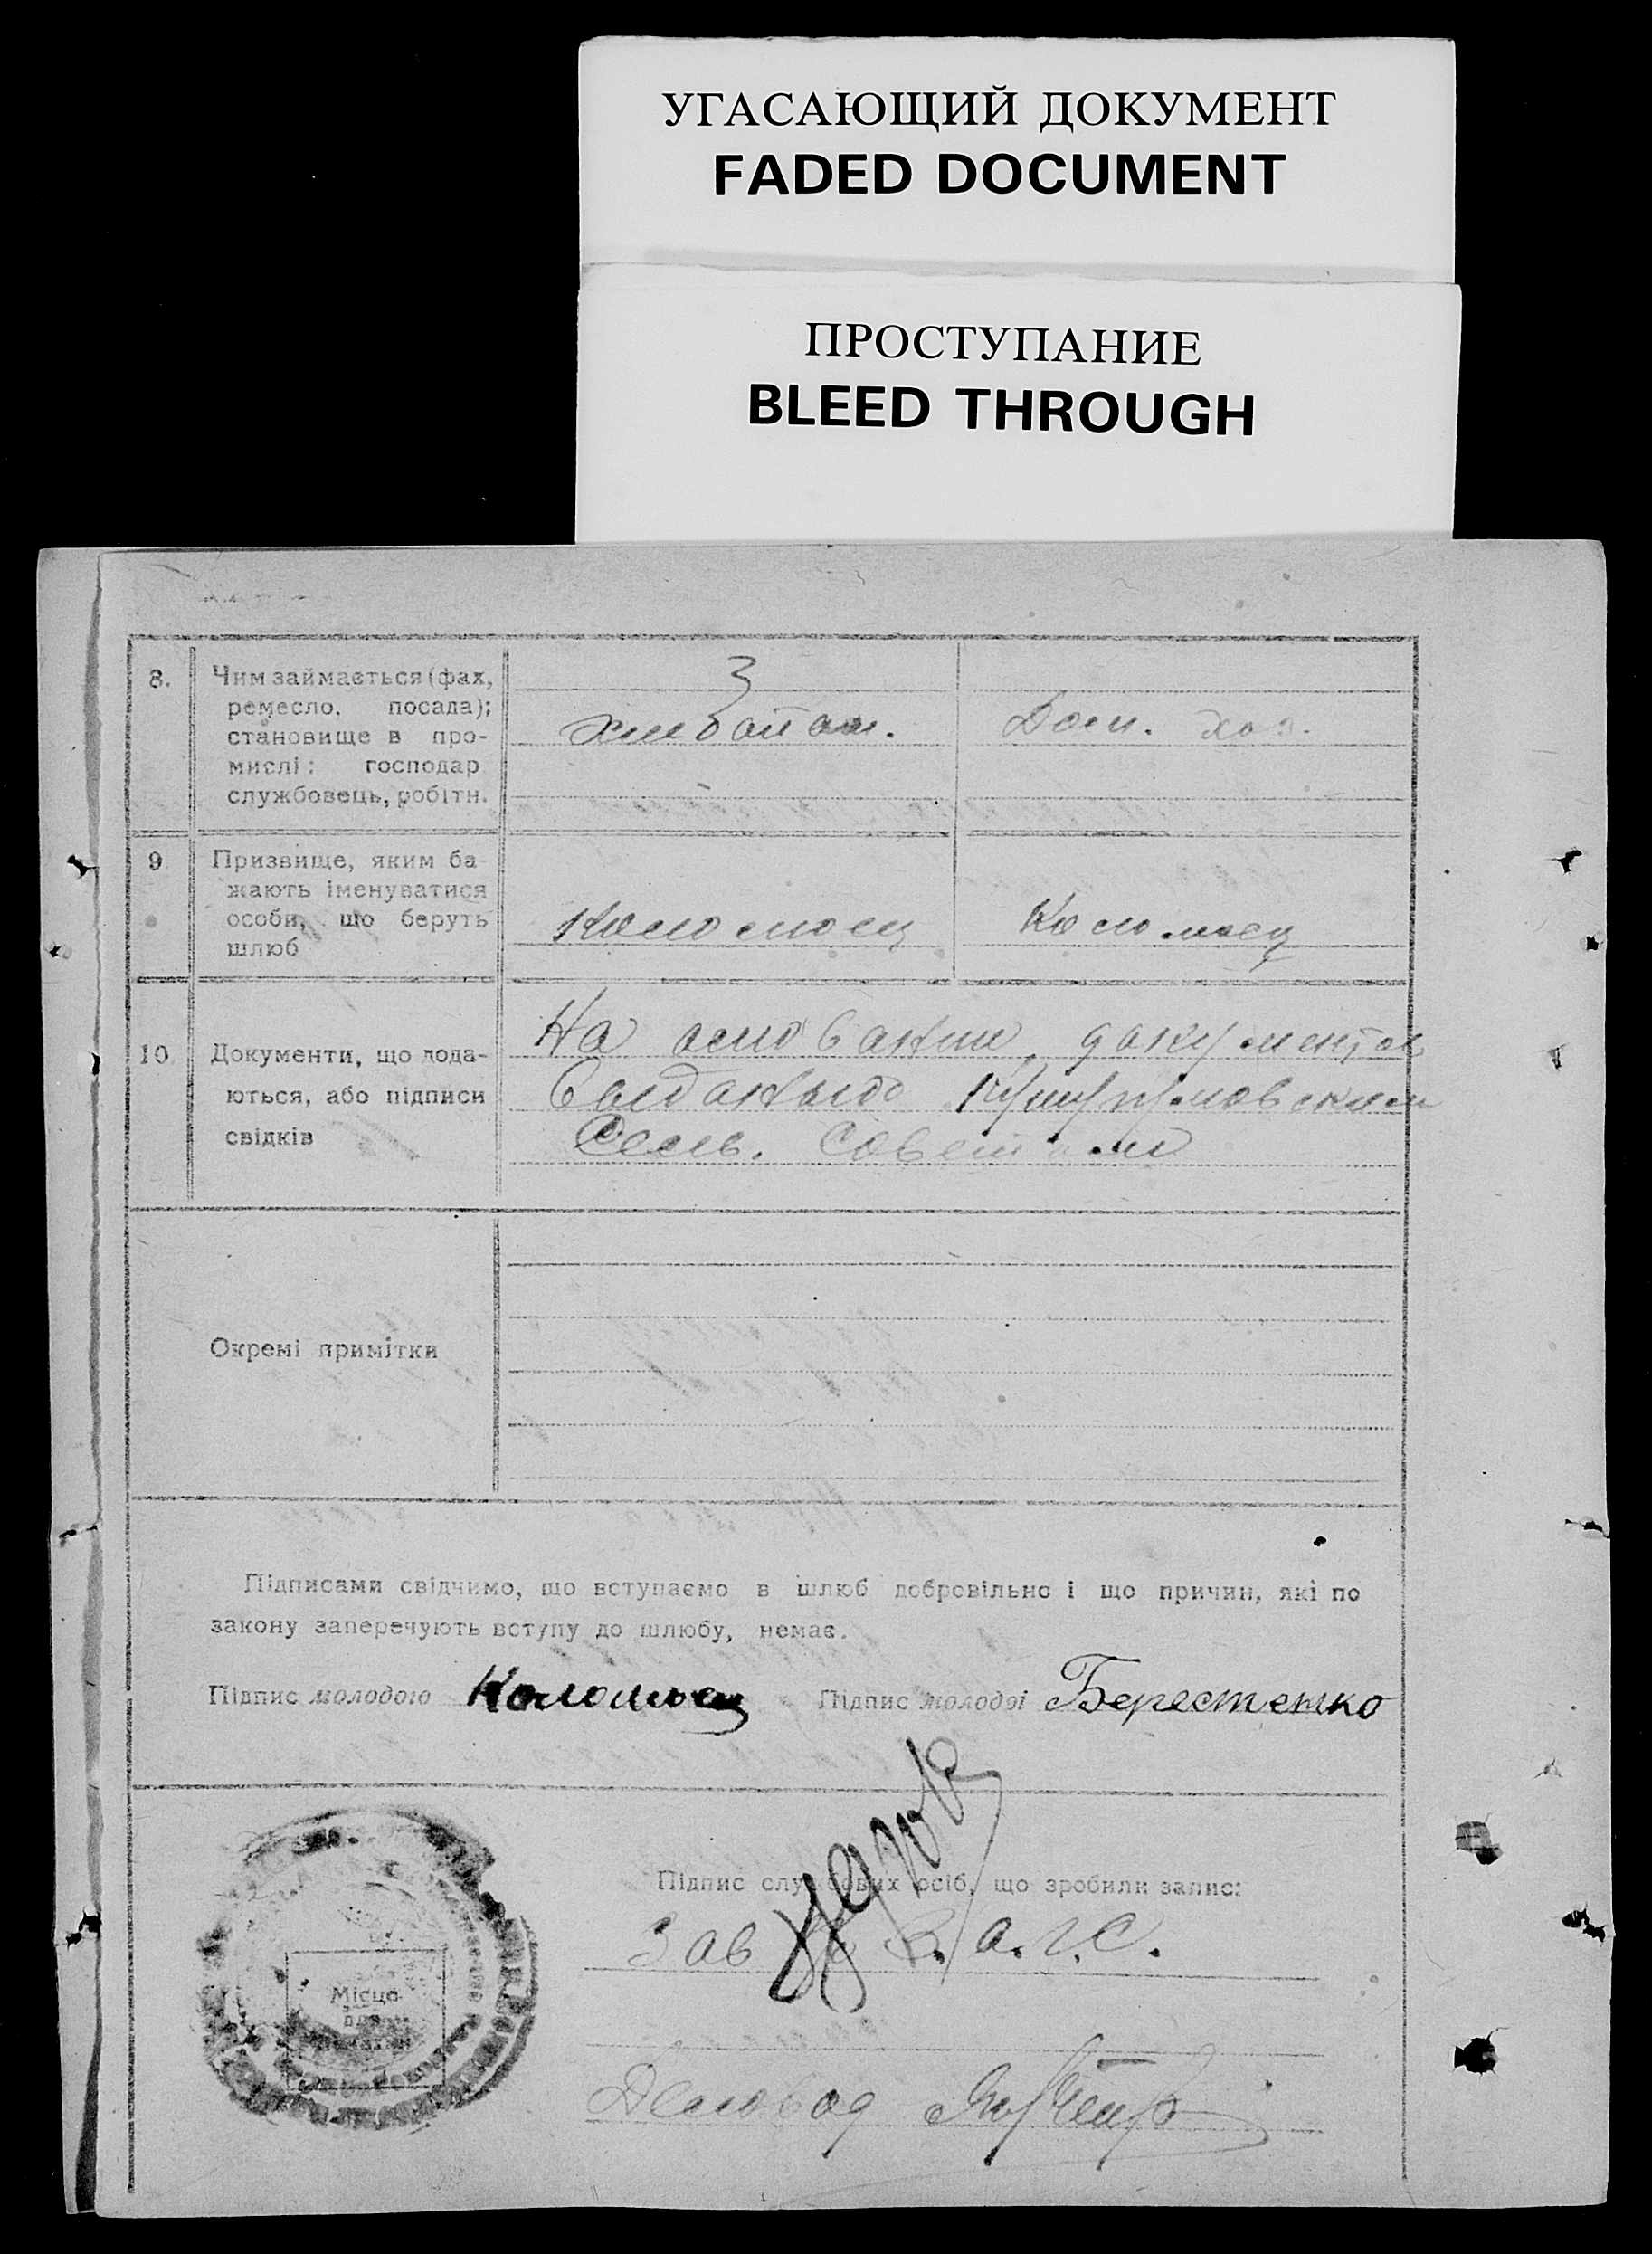 УГАСАЮЩИЙ ДОКУМЕНТ
FADED DOCUMENT
ПРОСТУПАНИЕ
BLEED THROUGH
8.
Чим займається (фах,
ремесло, посада);
становище в про-
мислі: господар
службовець, робітн.
З
Дом. хоз.
9
Призвище, яким ба-
жають іменуватися
особи, що беруть
шлюб
Коломоец
Коломоец
10
Документи, що пода-
ються, або підписи
свідків
На основании документов
Сель. Советом
Окремі примітки
Підписами свідчимо, що вступаємо в шлюб добровільно і що причин, які по
закону заперечують вступу до шлюбу, немає.
Підпис молодого Коломоец Підпис молодої Берестенко
Підпис службових осіб, що зробили запис:
Зав З.А.Г.С.
Місце
для
Деловод